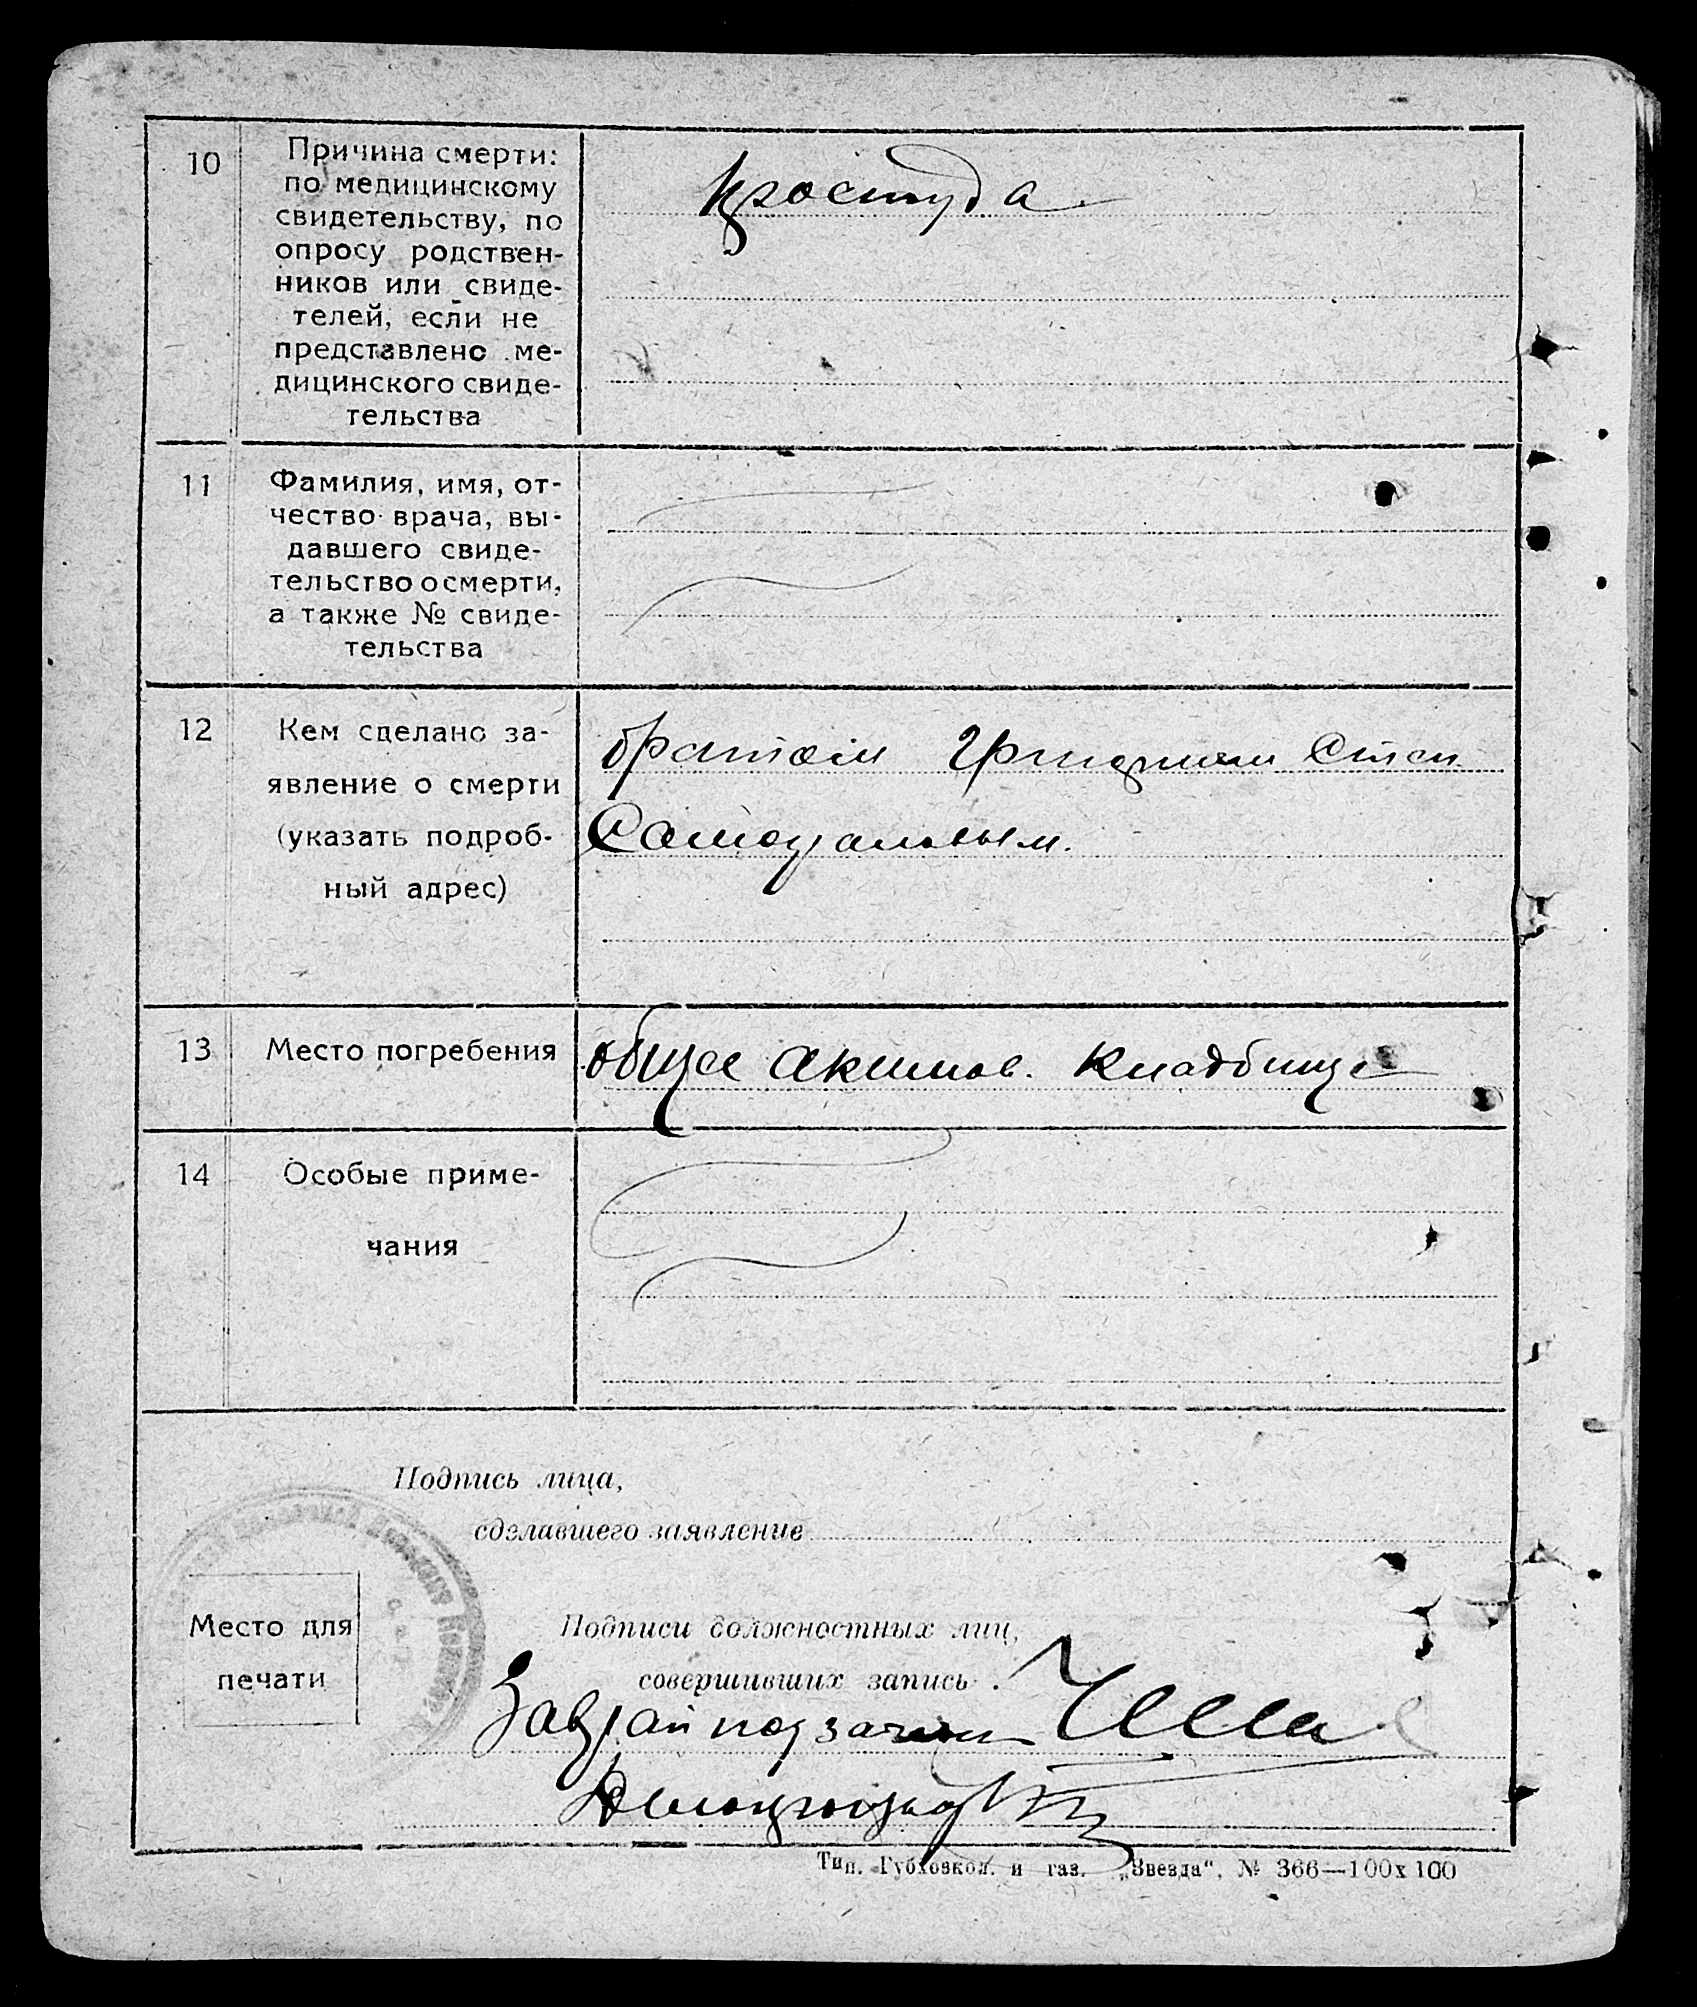 10
Причина смерти:
по медицинскому
свидетельству, по
опросу родствен-
ников или свиде-
телей, если не
представлено ме-
дицинского свиде-
тельства
простуда
11
Фамилия, имя, от-
чество врача, вы-
давшего свиде-
тельство о смерти,
а также № свиде-
тельства
12
Кем сделано за-
явление о смерти
(указать подроб-
ный адрес)
братом
13
Место погребения
общее Акимов. Кладбище
14
Особые приме-
чания
Подпись лица,
сделавшего заявление
Место для
печати
Подписи должностных лиц,
совершивших запись
Заврайподзагсом
Делопроизвод
Тип. Губховкол. и газ. „Звезда“, № 366—100х100